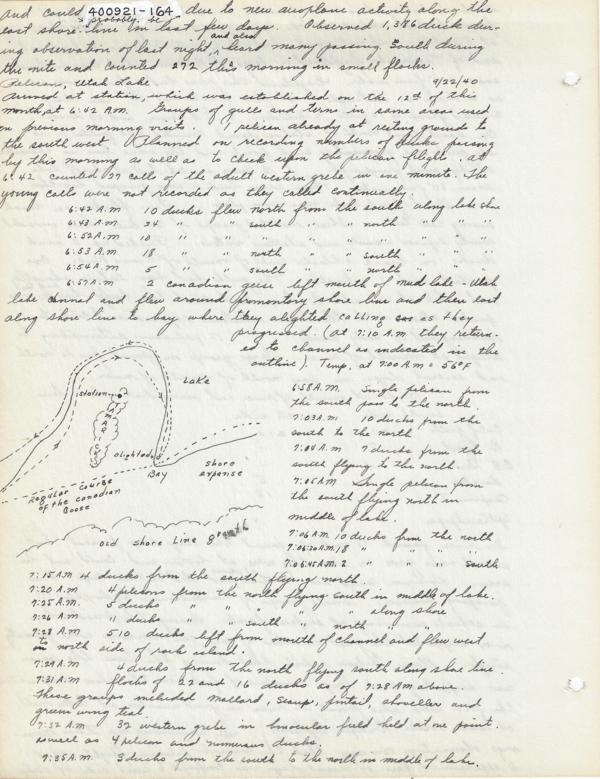 and could probably be due to new aeroplane activity along the
400921-164
east shore line in last few days. Observed 1,386 duck dur-
ing observation of last night, and also heard many passing south during
the nite and counted 272 this morning in small flocks.
Pelican, Utah Lake 9/22/40
Arrived at station, which was established on the 12th of this
month, at 6:42 A.M. Groups of gulls and terns in same areas used
on previous morning visits. 1 pelican already at resting grounds to
the south west. Planned on recording numbers of ducks passing
by this morning as well as to check upon the pelican flight. At
6:42 counted 27 calls of the adult western grebe in one minute. The
young calls were not recorded as they called continually.
6:42 A.M 10 ducks flew north from the south along lake shore
6:43 A.M 34 " " south " " north " "
6:52 A.M 10 " " " " " " " "
6:53 A.M 18 " " north " " south " "
6:54 A.M 5 " " south " " north " "
6:57 A.M 2 canadian geese left mouth of mud lake - Utah
lake channel and flew around promontory shore line and then east
along shore line to bay where they alighted calling as they
progressed. (at 7:10 A.M they return-
ed to channel as indicated in the
outline). Temp. at 7:00 A.M = 56°F
Lake
Station
TAMARACK
alighted
Bay
shore expanse
Regular course
of the canadian
Goose
old shore Line growth
6:58 A.M. Single pelican from
the south pass to the north.
7:03 A.M 10 ducks from the
south to the north
7:04 A.M 7 ducks from the
south flying to the north.
7:05 A.M Single pelican from
the south flying north in
middle of lake.
7:06 A.M 10 ducks from the north
7:06:30 A.M. 18 " " " "
7:06:45 A.M. 2 " " " south
7:15 A.M 4 ducks from the south flying north.
7:20 A.M 4 pelicans from the north flying south in middle of lake.
7:25 A.M. 5 ducks " " " " along shore
7:26 A.M 11 ducks " " south " north " "
7:28 A.M 510 ducks left from mouth of channel and flew west
to north side of rock island.
7:29 A.M 4 ducks from the north flying south along shore line.
7:31 A.M flocks of 22 and 16 ducks as of 7:28 AM above.
These groups included mallard, scaup, pintail, shoveller and
green wing teal.
7:32 A.M 32 western grebe in binocular field held at one point.
as well as 4 pelican and numerous ducks.
7:35 A.M. 3 ducks from the south to the north in middle of lake.